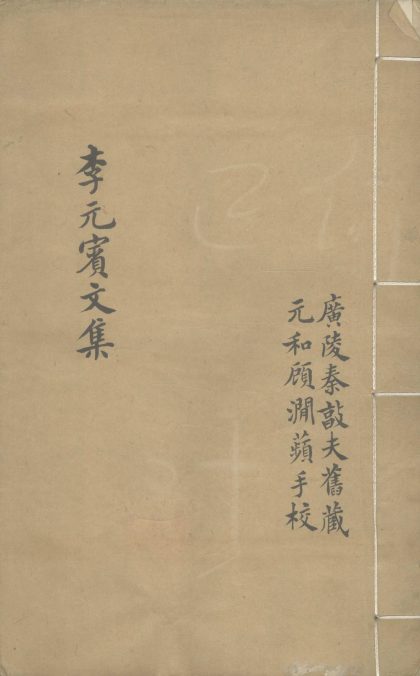 廣陵秦敦夫舊藏
元和顧澗蘋手校
李元賓文集